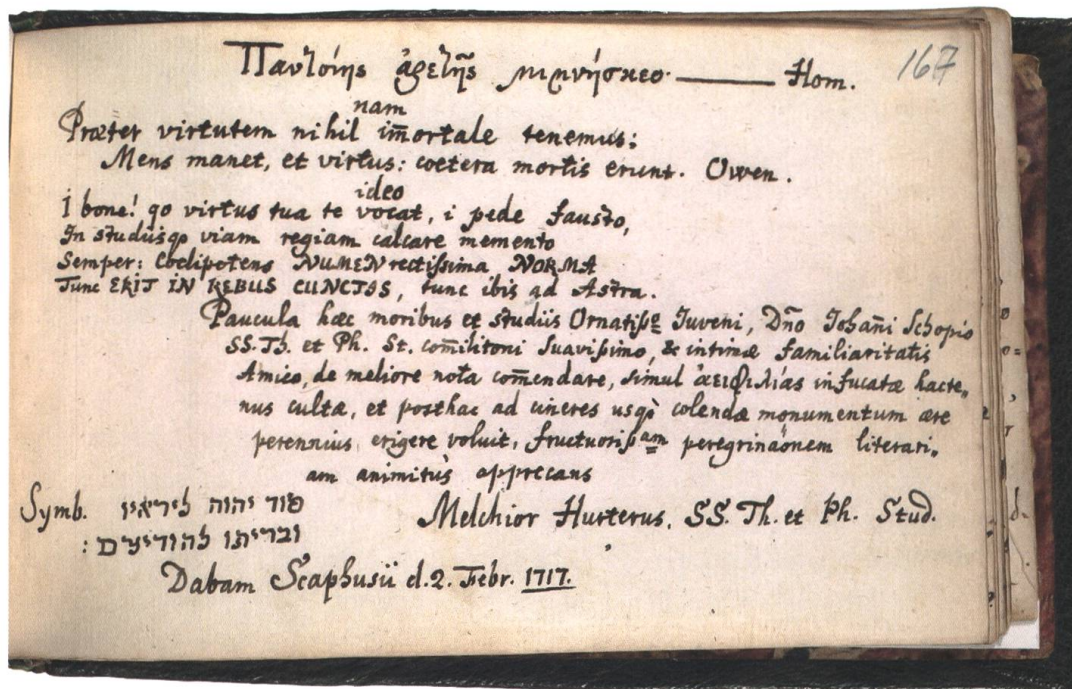 Παντοίης ἀρετῆς μιμνήσκεο. ——— Hom.
167
nam
Præter virtutem nihil im̄ortale tenemus:
Mens manet, et virtus: cœtera mortis erunt. Owen.
ideo
I bone! qo virtus tua te vocat, i pede fausto,
In studiisqꝫ viam regiam calcare memento
Semper: Cœlipotens NUMEN rectissima NORMA
Tunc ERIT IN REBUS CUNCTIS, tunc ibis ad Astra.
Paucula hæc moribus et studiis Ornatißo Iuveni, Dn̄o Iohan̄i Schopio
SS. Th. et Ph. St. com̄ilitoni suavißimo, & intimæ familiaritatis
Amico, de meliore nota com̄endare, simul ἀειφιλίας infucatæ hacte„
nus cultæ, et posthac ad cineres usqꝫ colendæ monumentum ære
perennius erigere voluit, fructuosißam peregrinaōnem literari„
am animitùs apprecans
Symb. סוד יהוה ליראיו
ובריתו להודיעם :
Melchior Hurterus, SS. Th. et Ph. Stud.
Dabam Scaphusii d. 2. Febr. 1717.